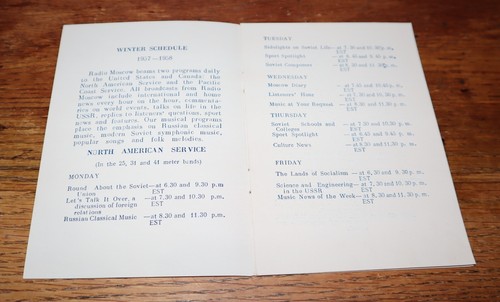 WINTER SCHEDULE
1957—1958
Radio Moscow beams two programs daily
to the United States and Canada, the
North American Service and the Pacific
Coast Service. All broadcasts from Radio
Moscow include international and home
news every hour on the hour, commenta-
ries on world events, talks on life in the
USSR, replies to listeners' questions, sport
news and features. Our musical programs
place the emphasis on Russian classical
music, modern Soviet symphonic music,
popular songs and folk melodies.
NORTH AMERICAN SERVICE
(In the 25, 31 and 41 meter bands)
MONDAY
Round About the Soviet—at 6.30 and 9.30 p.m
Union EST
Let's Talk It Over, a —at 7.30 and 10.30 p.m.
discussion of foreign EST
relations
Russian Classical Music —at 8.30 and 11.30 p.m.
EST
TUESDAY
on Soviet Life—at 7.30 and 10.30 p.m.
EST
Sport Spotlight —at and 9.40 p.m.
EST
Soviet Composers —at 8.30 and p.m.
EST
WEDNESDAY
Moscow Diary —at and 10.40 p.m.
EST
Listeners' Hour —at and p.m.
EST
Music at Your Request —at 8.30 and 11.30 p.m.
EST
THURSDAY
Soviet Schools and —at 7.30 and 10.30 p.m.
Colleges EST
Sport Spotlight —at 6.45 and 9.45 p. m.
EST
Culture News —at 8.30 and 11.30 p. m.
EST
FRIDAY
The Lands of Socialism —at 6.30 and 9.30 p. m.
EST
Science and Engineering —at 7.30 and 10.30 p. m.
in the USSR EST
Music News of the Week—at 8.30 and 11.30 p. m.
EST